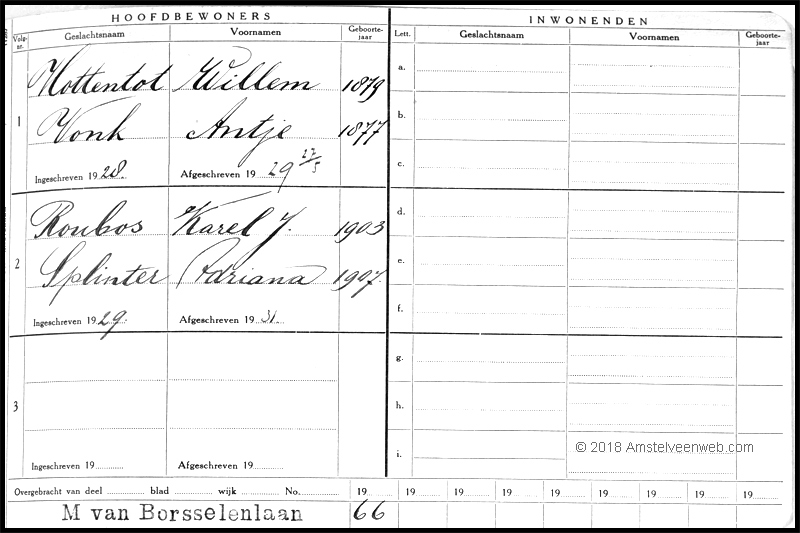 HOOFDBEWONERS INWONENDEN
Volg-nr. Geslachtsnaam Voornamen Geboorte-jaar Lett. Geslachtsnaam Voornamen Geboorte-jaar
1
Hottentot Willem 1879
Vonk Antje 1877
Ingeschreven 1928 Afgeschreven 1929 27/5
2
Roubos Karel J. 1903
Splinter Adriana 1907.
Ingeschreven 1929. Afgeschreven 1931.
3
Ingeschreven 19 Afgeschreven 19
a.
b.
c.
d.
e.
f.
g.
h.
i.
© 2018 Amstelveenweb.com
Overgebracht van deel blad wijk No. 19 19 19 19 19 19 19 19 19
M van Borsselenlaan 66